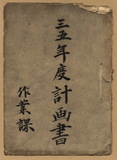 三五年度計画書
作業課